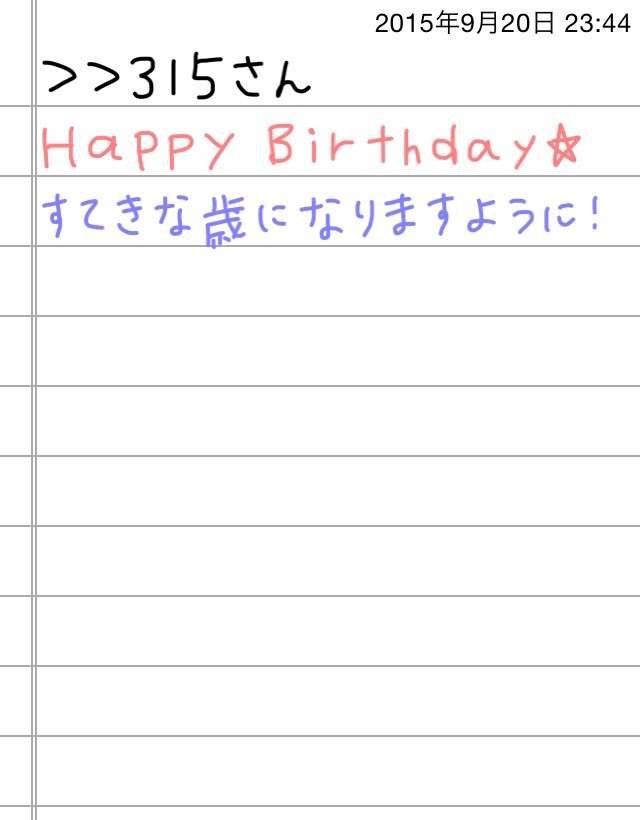 2015年9月20日 23:44
>>315さん
Happy Birthday☆
すてきな歳になりますように!